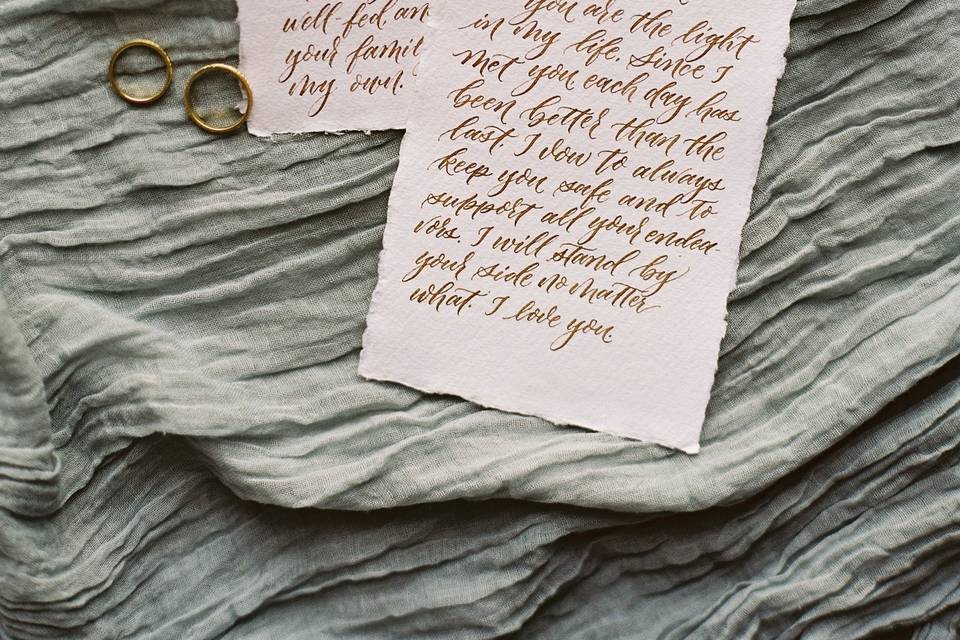 well fed an
your famil
my own.
you are the light
in my life. Since I
met you each day has
been better than the
last. I vow to always
keep you safe and to
support all your endea-
vors. I will stand by
your side no matter
what. I love you.